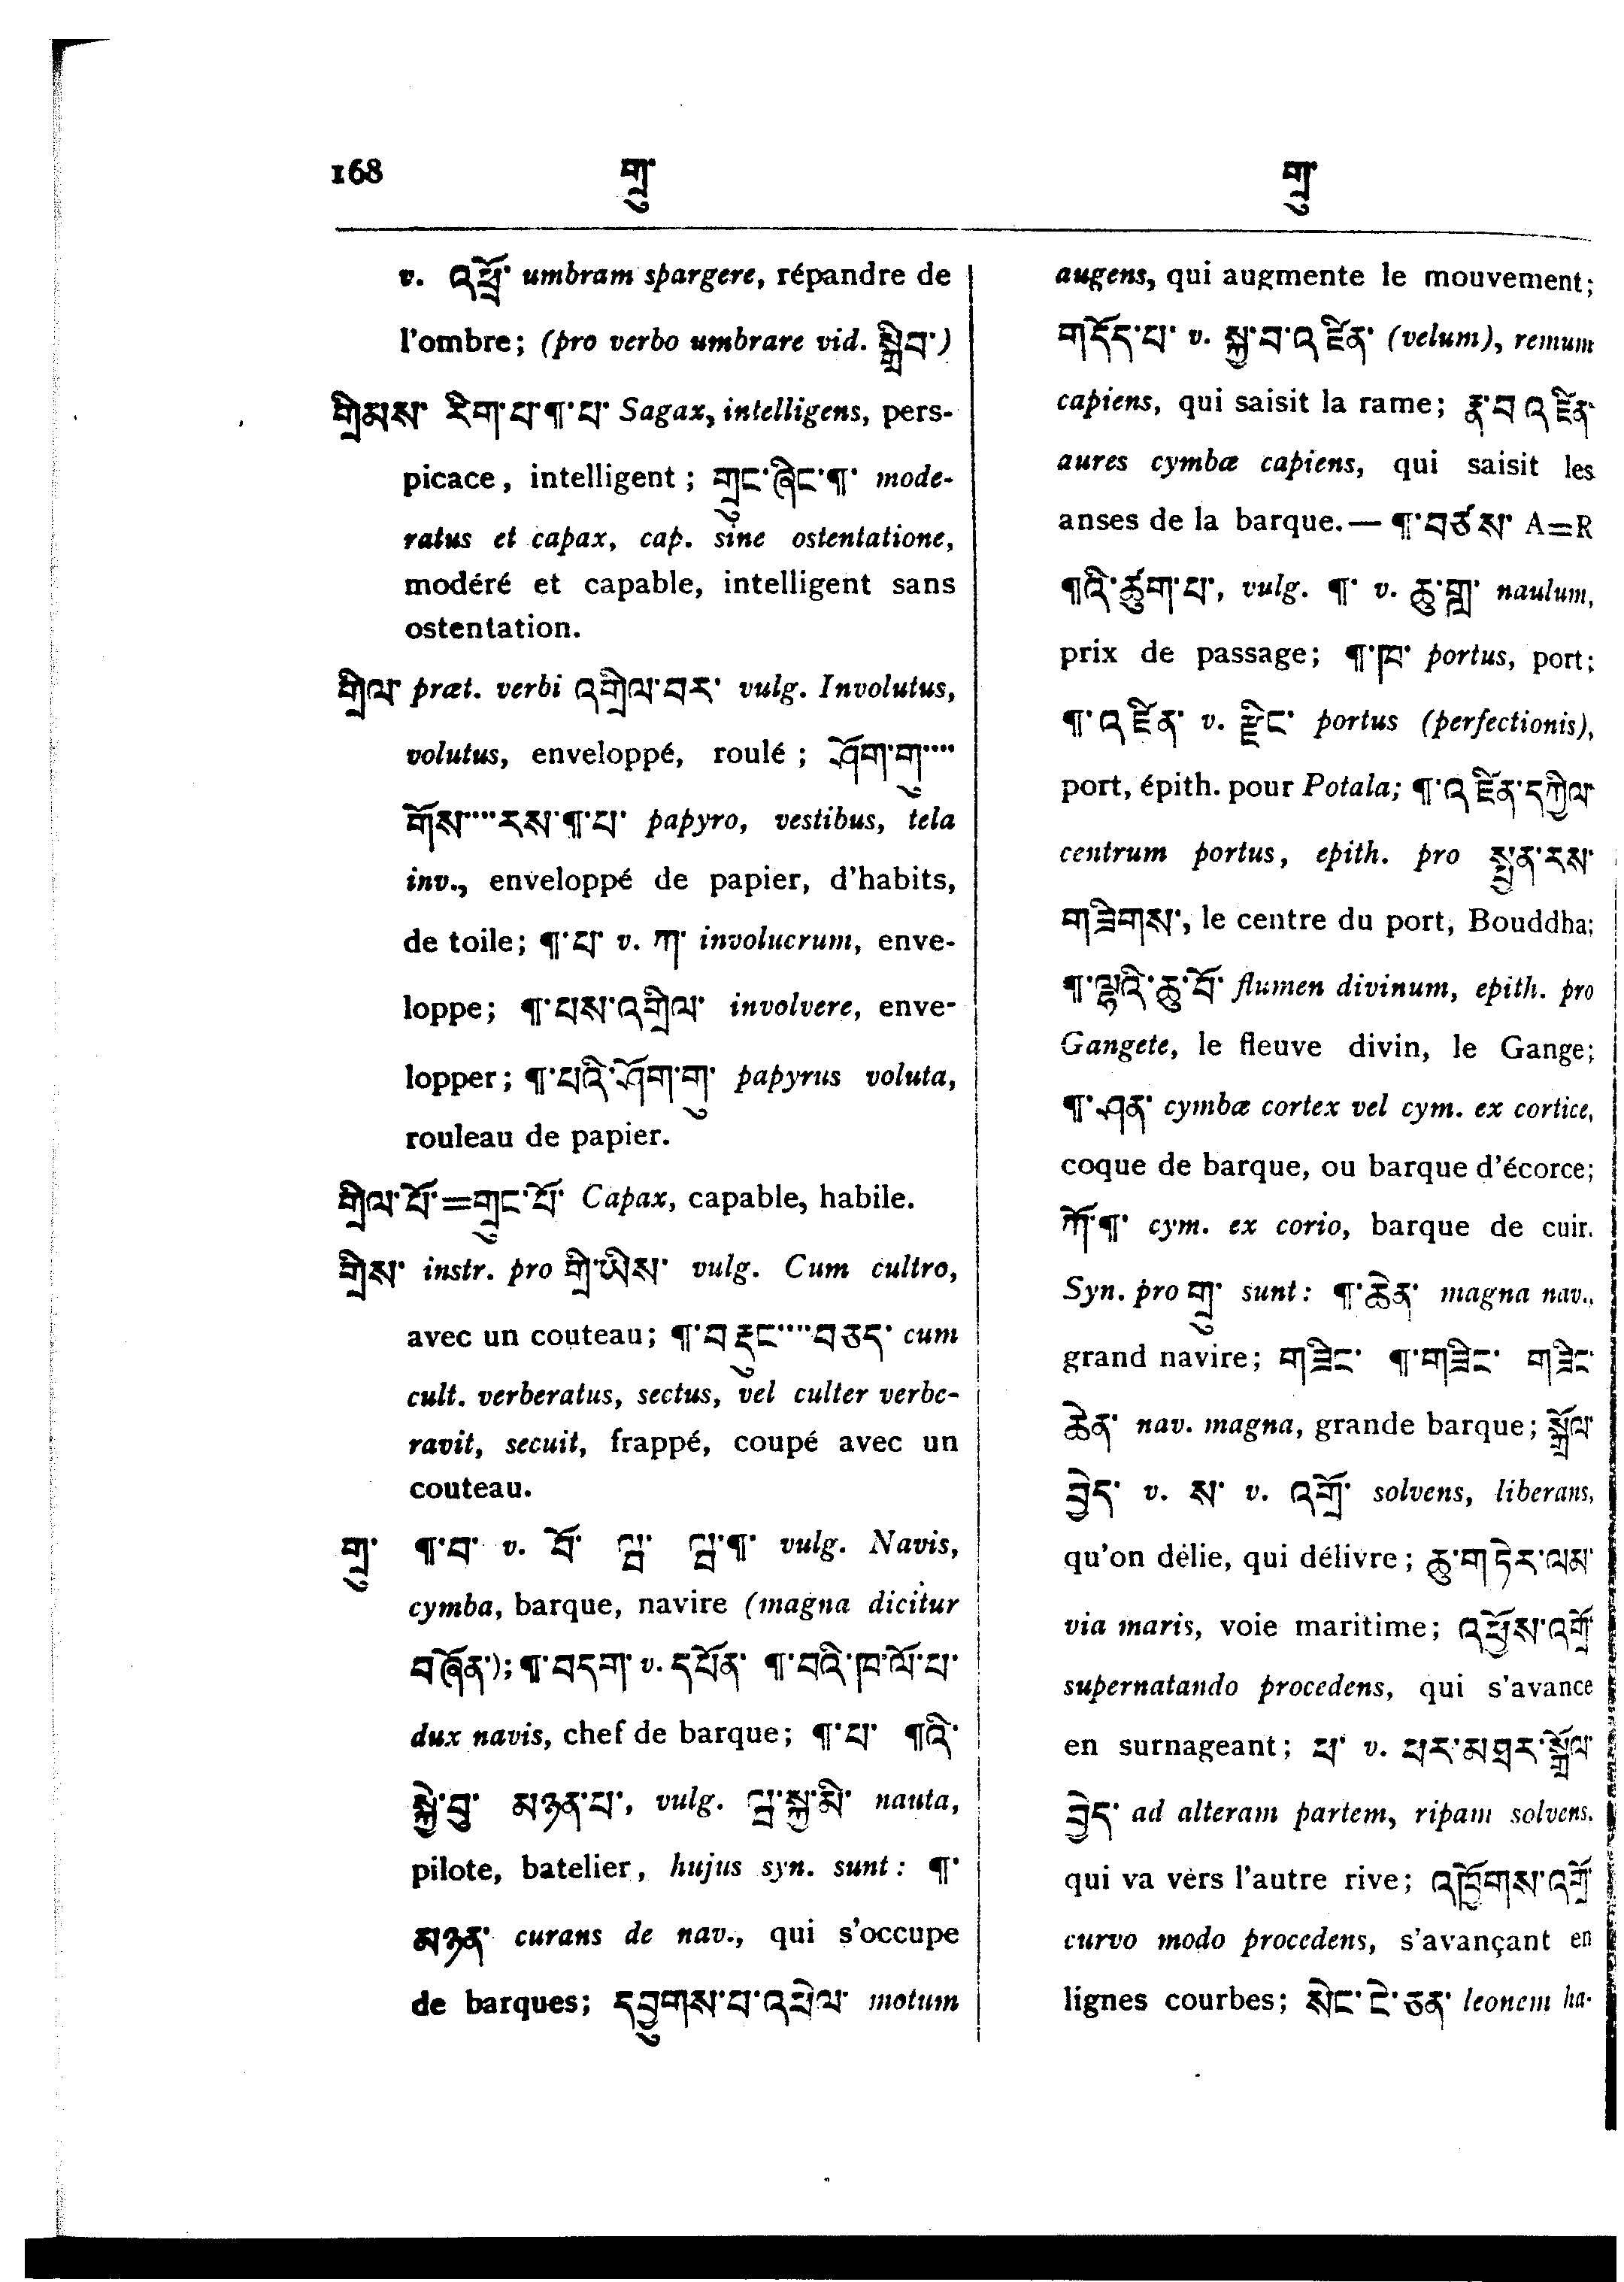 168 གྲུ་ གྲུ་
v. འཕྲོ་ umbram spargere, répandre de
l'ombre; (pro verbo umbrare vid. སྒྲིབ་)
གྲིམས་ རིག་པ་¶་པ་ Sagax, intelligens, pers-
picace, intelligent; གྲུང་ཞིང་¶་ mode-
ratus et capax, cap. sine ostentatione,
modéré et capable, intelligent sans
ostentation.
གྲིལ་ præt. verbi འགྲིལ་བར་ vulg. Involutus,
volutus, enveloppé, roulé; ཤོག་གུ་····
གོས་····རས་¶་པ་ papyro, vestibus, tela
inv., enveloppé de papier, d'habits,
de toile; ¶་པ་ v. ཀ་ involucrum, enve-
loppe; ¶་པས་འགྲིལ་ involvere, enve-
lopper; ¶་པའི་ཤོག་གུ་ papyrus voluta,
rouleau de papier.
གྲིལ་པོ་=གྲུང་པོ་ Capax, capable, habile.
གྲིས་ instr. pro གྲི་ཡིས་ vulg. Cum cultro,
avec un couteau; ¶་བརྡུང་····བཅད་ cum
cult. verberatus, sectus, vel culter verbe-
ravit, secuit, frappé, coupé avec un
couteau.
གྲུ་ ¶་བ་ v. བོ་ ཀོྲ་ vulg. Navis,
cymba, barque, navire (magna dicitur
བཞོན་); ¶་བདག་ v. དཔོན་ ¶་བའི་ཁ་ལོ་པ་
dux navis, chef de barque; ¶་པ་ ¶འི་
སྐྱེ་བུ་ མཉན་པ་, vulg. nauta,
pilote, batelier, hujus syn. sunt: ¶་
མཉན་ curans de nav., qui s'occupe
de barques; དབྱུགས་པ་འཕེལ་ motum
augens, qui augmente le mouvement;
གདོད་པ་ v. སྐྱ་བ་འཛིན་ (velum), remum
capiens, qui saisit la rame; རྣ་བ་འཛིན་
aures cymbæ capiens, qui saisit les
anses de la barque.— ¶་བཙས་ A=R
¶འི་ཚུག་པ་, vulg. ¶་ v. ཆུ་གླ་ naulum,
prix de passage; ¶་ཁ་ portus, port;
¶་འཛིན་ v. རྫིང་ portus (perfectionis),
port, épith. pour Potala; ¶་འཛིན་དཀྱིལ་
centrum portus, epith. pro སྤྱན་རས་
གཟིགས་, le centre du port, Bouddha;
¶་ལྷའི་ཆུ་བོ་ flumen divinum, epith. pro
Gangete, le fleuve divin, le Gange;
¶་ཤན་ cymbæ cortex vel cym. ex cortice,
coque de barque, ou barque d'écorce;
ཀོ་¶་ cym. ex corio, barque de cuir.
Syn. pro གྲུ་ sunt: ¶་ཆེན་ magna nav.,
grand navire; གཟིང་ ¶་གཟིང་ གཟིང་
ཆེན་ nav. magna, grande barque; སྒྲོལ་
བྱེད་ v. ས་ v. འགྲོ་ solvens, liberans,
qu'on délie, qui délivre; ཆུ་གཏེར་ལམ་
via maris, voie maritime; འཕྱོས་འགྲོ་
supernatando procedens, qui s'avance
en surnageant; ཕ་ v. ཕར་མཐར་སྒྲོལ་
བྱེད་ ad alteram partem, ripam solvens,
qui va vers l'autre rive; འཁྱོགས་འགྲོ་
curvo modo procedens, s'avançant en
lignes courbes; སེང་ངེ་ཅན་ leonem ha-